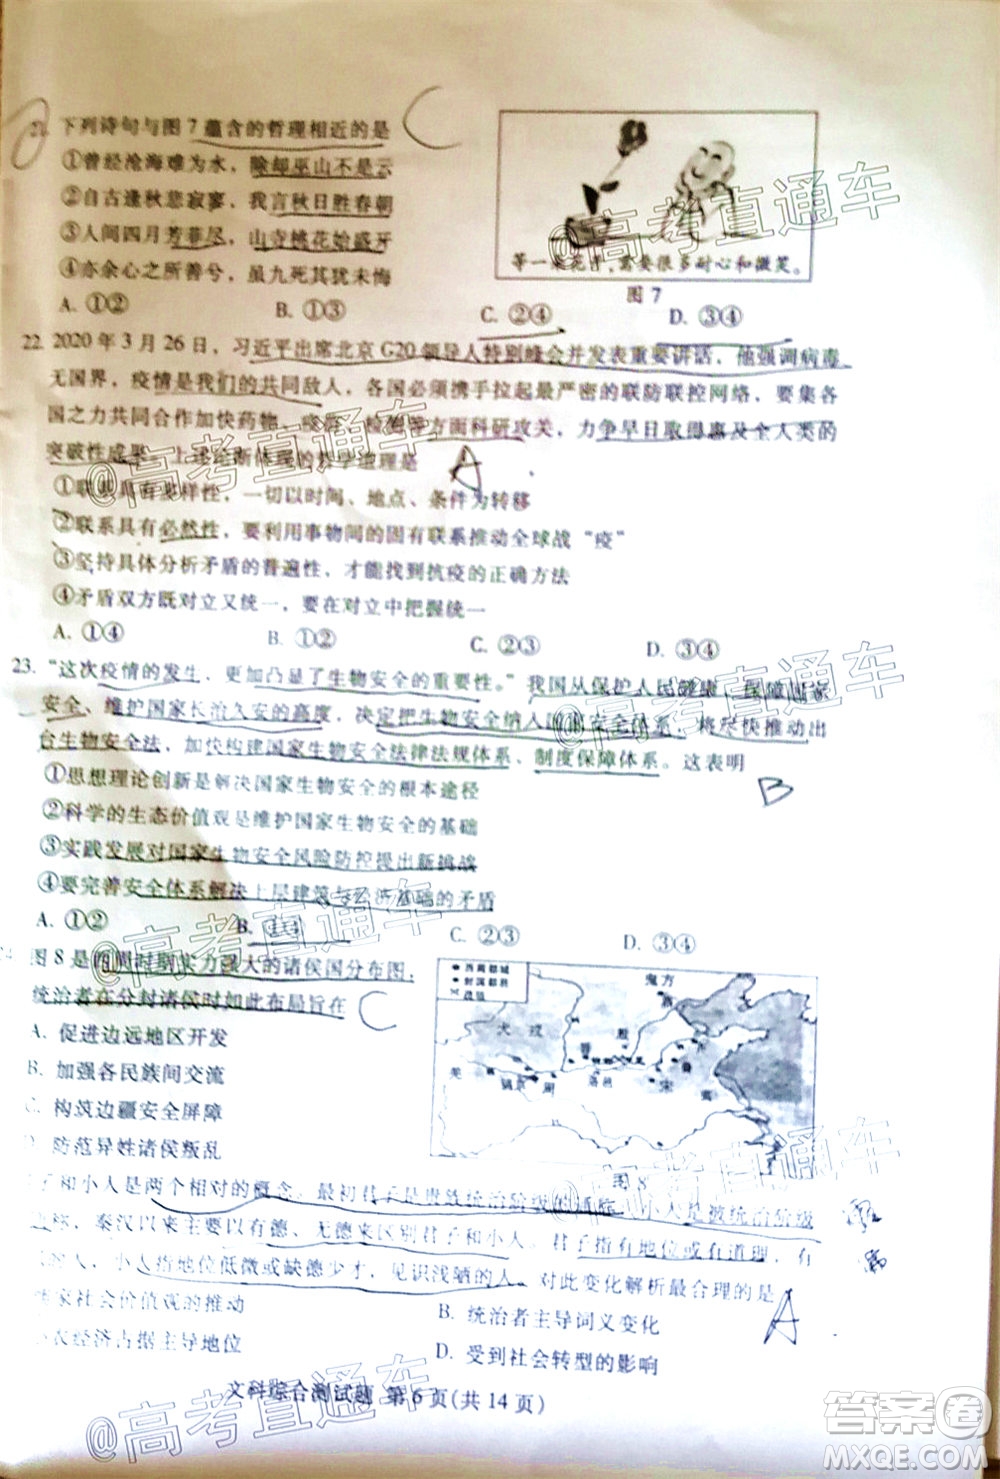 21. 下列诗句与图7蕴含的哲理相近的是
①曾经沧海难为水，除却巫山不是云
②自古逢秋悲寂寥，我言秋日胜春朝
③人间四月芳菲尽，山寺桃花始盛开
④亦余心之所善兮，虽九死其犹未悔
A. ①② B. ①③ C. ②④ D. ③④
C
等一朵花开，需要很多耐心和微笑。
图7
22. 2020年3月26日，习近平出席北京G20领导人特别峰会并发表重要讲话，他强调病毒
无国界，疫情是我们的共同敌人，各国必须携手拉起最严密的联防联控网络。要集各
国之力共同合作加快药物、疫苗、检测等方面科研攻关，力争早日取得惠及全人类的
突破性成果。上述论断体现的哲学道理是
A
①联系具有多样性，一切以时间、地点、条件为转移
②联系具有必然性，要利用事物间的固有联系推动全球战“疫”
③坚持具体分析矛盾的普遍性，才能找到抗疫的正确方法
④矛盾双方既对立又统一，要在对立中把握统一
A. ①④ B. ①② C. ②③ D. ③④
23. “这次疫情的发生，更加凸显了生物安全的重要性。”我国从保护人民健康、保障国家
安全、维护国家长治久安的高度，决定把生物安全纳入国家安全体系，将尽快推动出
台生物安全法，加快构建国家生物安全法律法规体系、制度保障体系。这表明
B
①思想理论创新是解决国家生物安全的根本途径
②科学的生态价值观是维护国家生物安全的基础
③实践发展对国家生物安全风险防控提出新挑战
④要完善安全体系解决上层建筑与经济基础的矛盾
A. ①② B. ①④ C. ②③ D. ③④
图8是西周时期实力强大的诸侯国分布图，
统治者在分封诸侯时如此布局旨在
C
A. 促进边远地区开发
B. 加强各民族间交流
C. 构筑边疆安全屏障
防范异姓诸侯叛乱
西周都城
封国都邑
鬼方
犬戎
燕
晋
齐
鲁
羌
镐京
周
洛邑
宋
图8
子和小人是两个相对的概念，最初君子是贵族统治阶级的通称，小人是被统治阶级
秦汉以来多以有德、无德来区别君子和小人，君子指有地位或有道理，有
人，小人指地位低微或缺德少才，见识浅陋的人。对此变化解析最合理的是
A
家社会价值观的推动 B. 统治者主导词义变化
农经济占据主导地位 D. 受到社会转型的影响
文科综合测试题 第6页(共14页)
@高考直通车
@高考直通车
@高考直通车
@高考直通车
@高考直通车
@高考直通车
答案圈
MXQE.COM